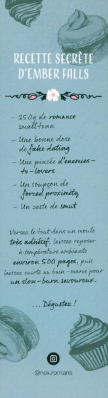 RECETTE SECRÈTE
D'EMBER FALLS
- 250g de romance
small town
- Une bonne dose
de fake dating
- Une pincée d'enemies-
to-lovers
- Un soupçon de
forced proximity
- Un zeste de smut
Versez le tout dans un moule
très adhésif, laissez reposer
à température ambiante
environ 500 pages, puis
laissez cuire au bain-marie pour
un slow-burn savoureux.
... Dégustez !